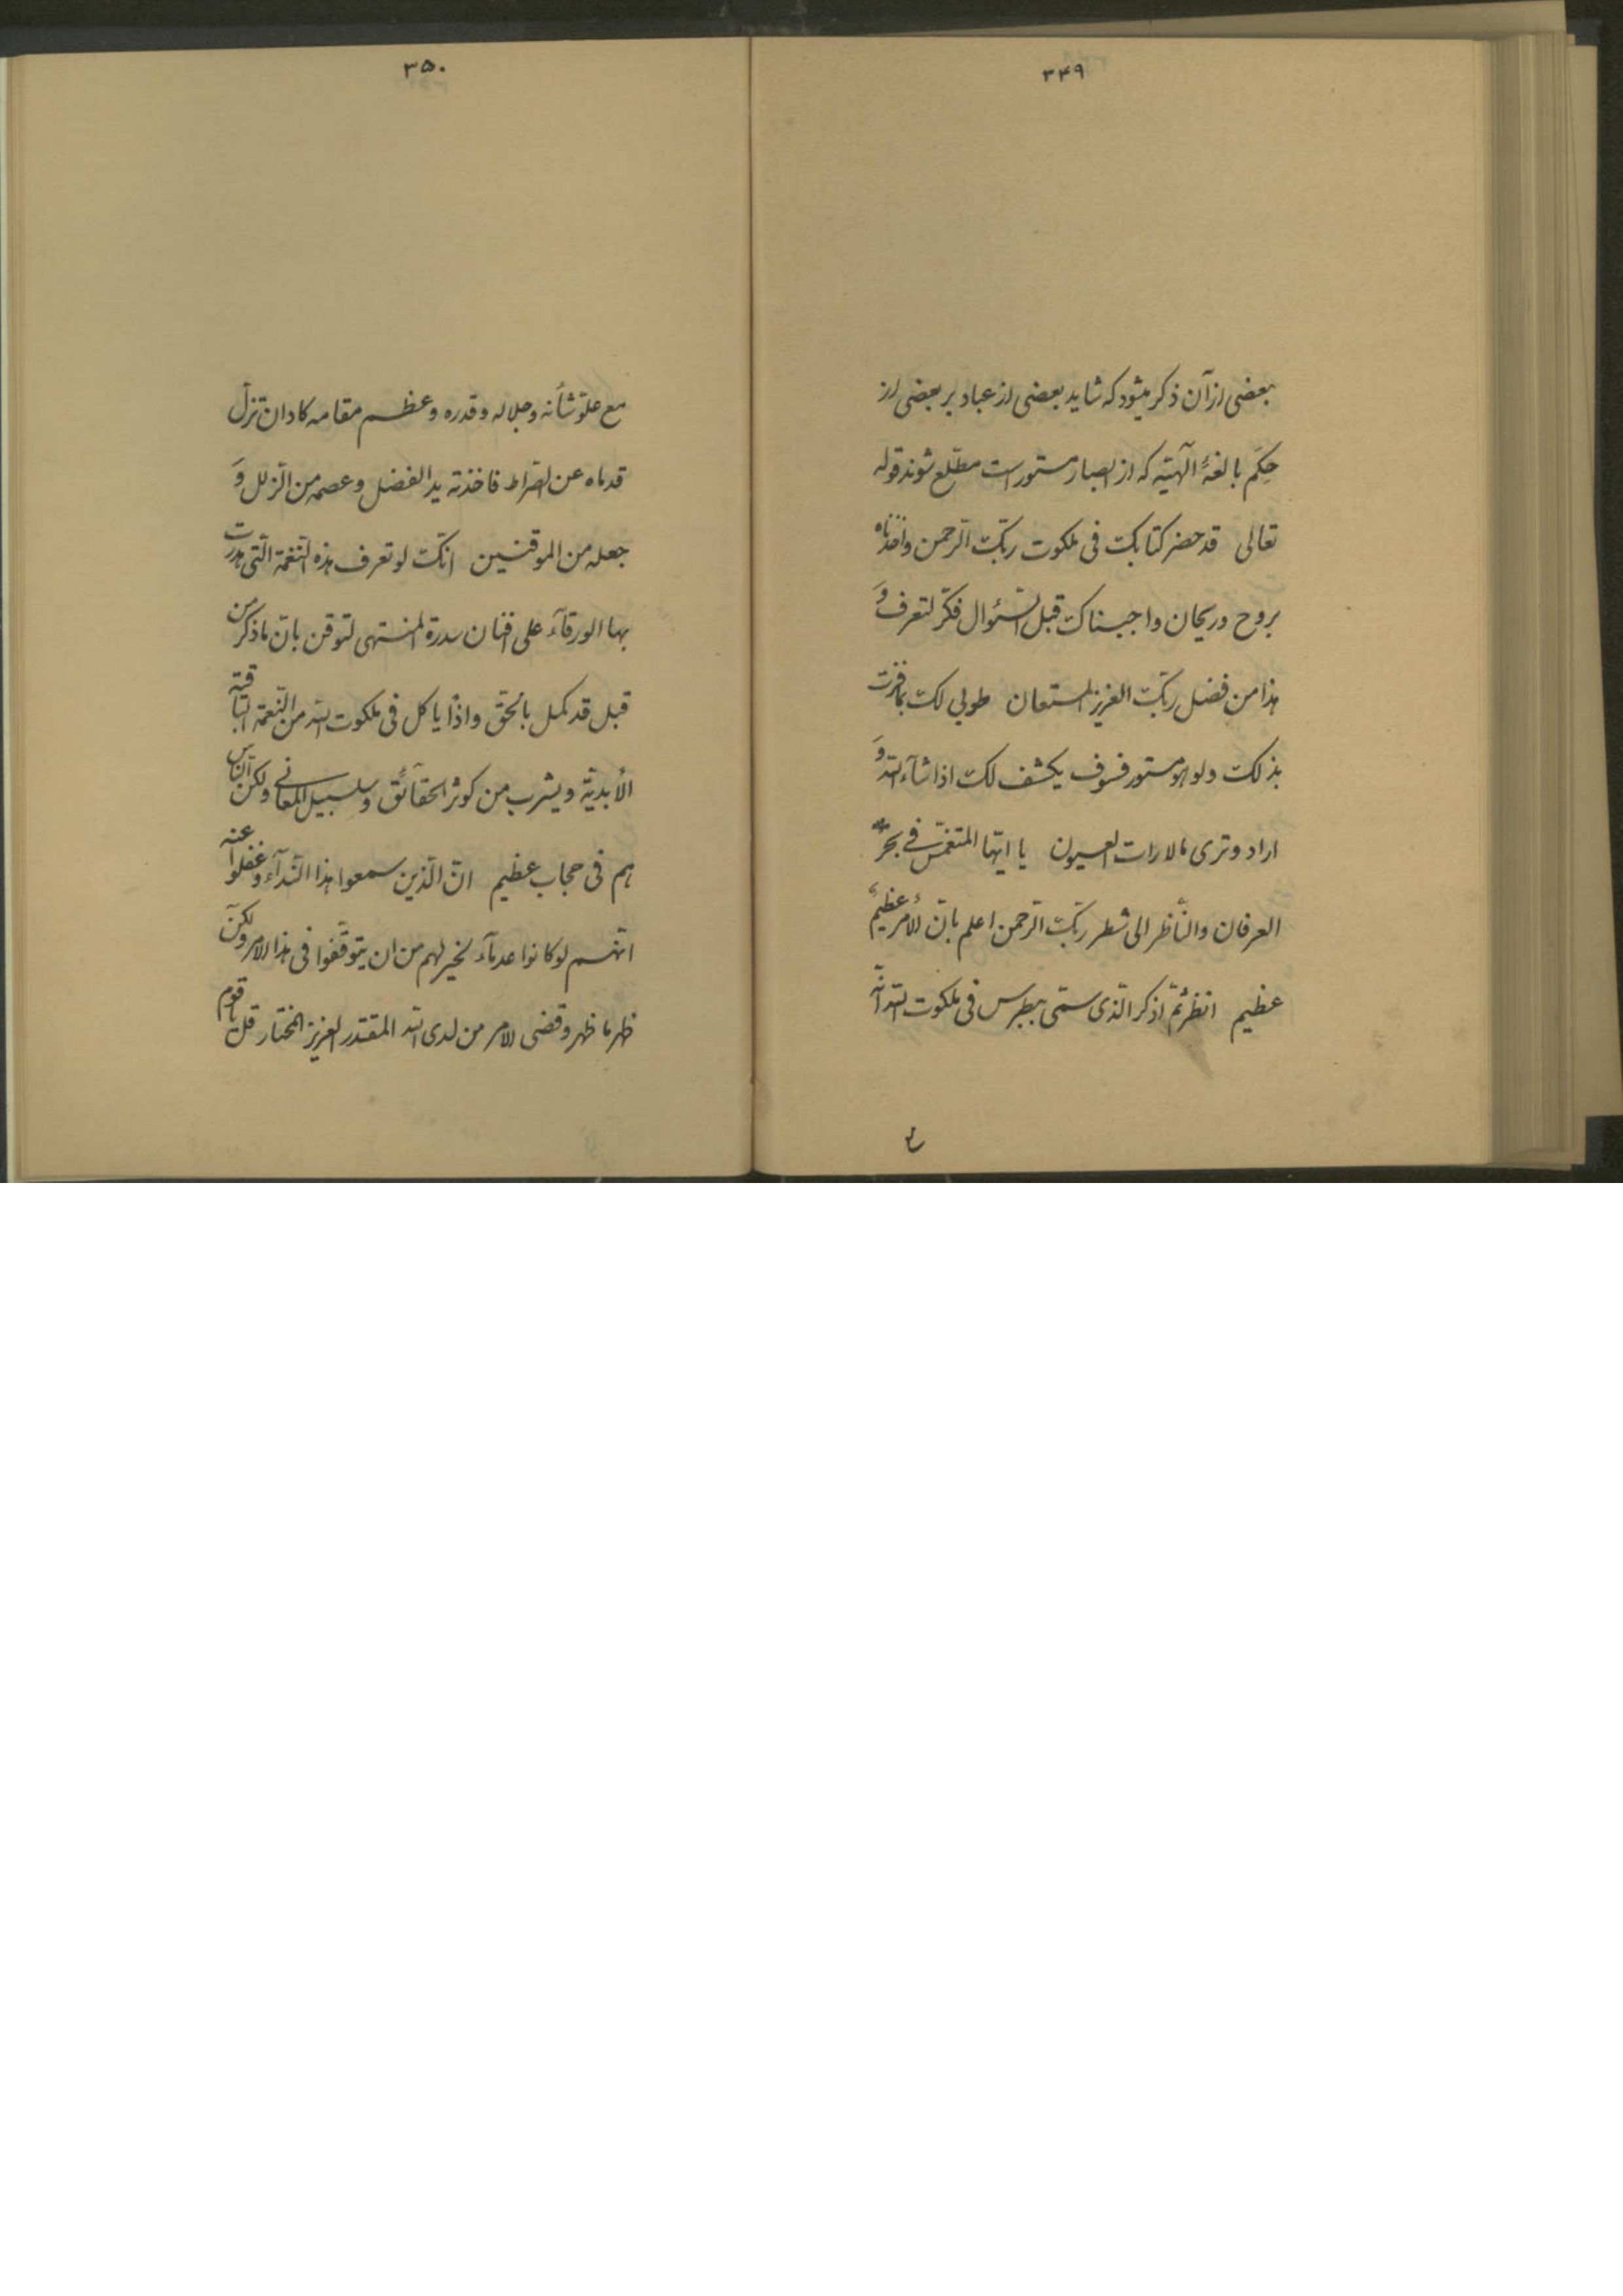 ۳۴۹
بعضی از آن ذکر میشود که شاید بعضی از عباد بر بعضی از
حِکَم بالغهٔ الٓهیّه که از ابصار مستور است مطّلع شوند قوله
تعالی قد حضر کتابک فی ملکوت ربّک الرّحمن و اخذناه
بروح و ریحان و اجبناک قبل السّئوال فکّر لتعرف وَ
هذا من فضل ربّک العزیز المستعان طوبی لک بما فزت
بذلک ولو هو مستور فسوف یکشف لک اذا شآء اللّه وَ
اراد و تری ما لا رأت العیون یا ایّها المتغمّس فی بحر
العرفان و النّاظر الی شطر ربّک الرّحمن اعلم بانّ الأمر عظیمٌ
عظیم انظر ثمّ اذکر الّذی سمّی ببطرس فی ملکوت اللّه انّه
۳۵۰
مع علوّ شأنه و جلاله و قدره و عظم مقامه کاد ان تزلّ
قدماه عن الصّراط فاخذته ید الفضل و عصمه من الزّلل وَ
جعله من الموقنین انّک لو تعرف هذه النّغمة الّتی هدرت
بها الورقآء علی افنان سدرة المنتهی لتوقن بانّ ما ذکر من
قبل قد کمل بالحقّ و اذًا یاکل فی ملکوت اللّه من النّعمة الباقیة
الأبدیّة و یشرب من کوثر الحقآئق و سلسبیل المعانی ولکن النّاس
هم فی حجاب عظیم انّ الّذین سمعوا هذا النّدآء و غفلوا عنه
انّهم لو کانوا عدمآء لخیر لهم من ان یتوقّفوا فی هذا الامر ولکن
ظهر ما ظهر و قضی الامر من لدی اللّه المقتدر العزیز المختار قل یا قوم